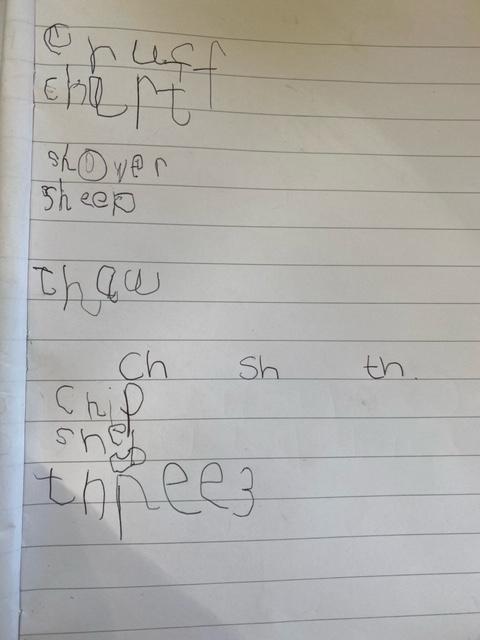 chuff
chart
shower
sheep
thaw
Ch sh th.
chip
three3